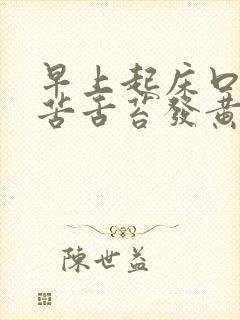 早上起床口
苦舌苔發黃
陳世益